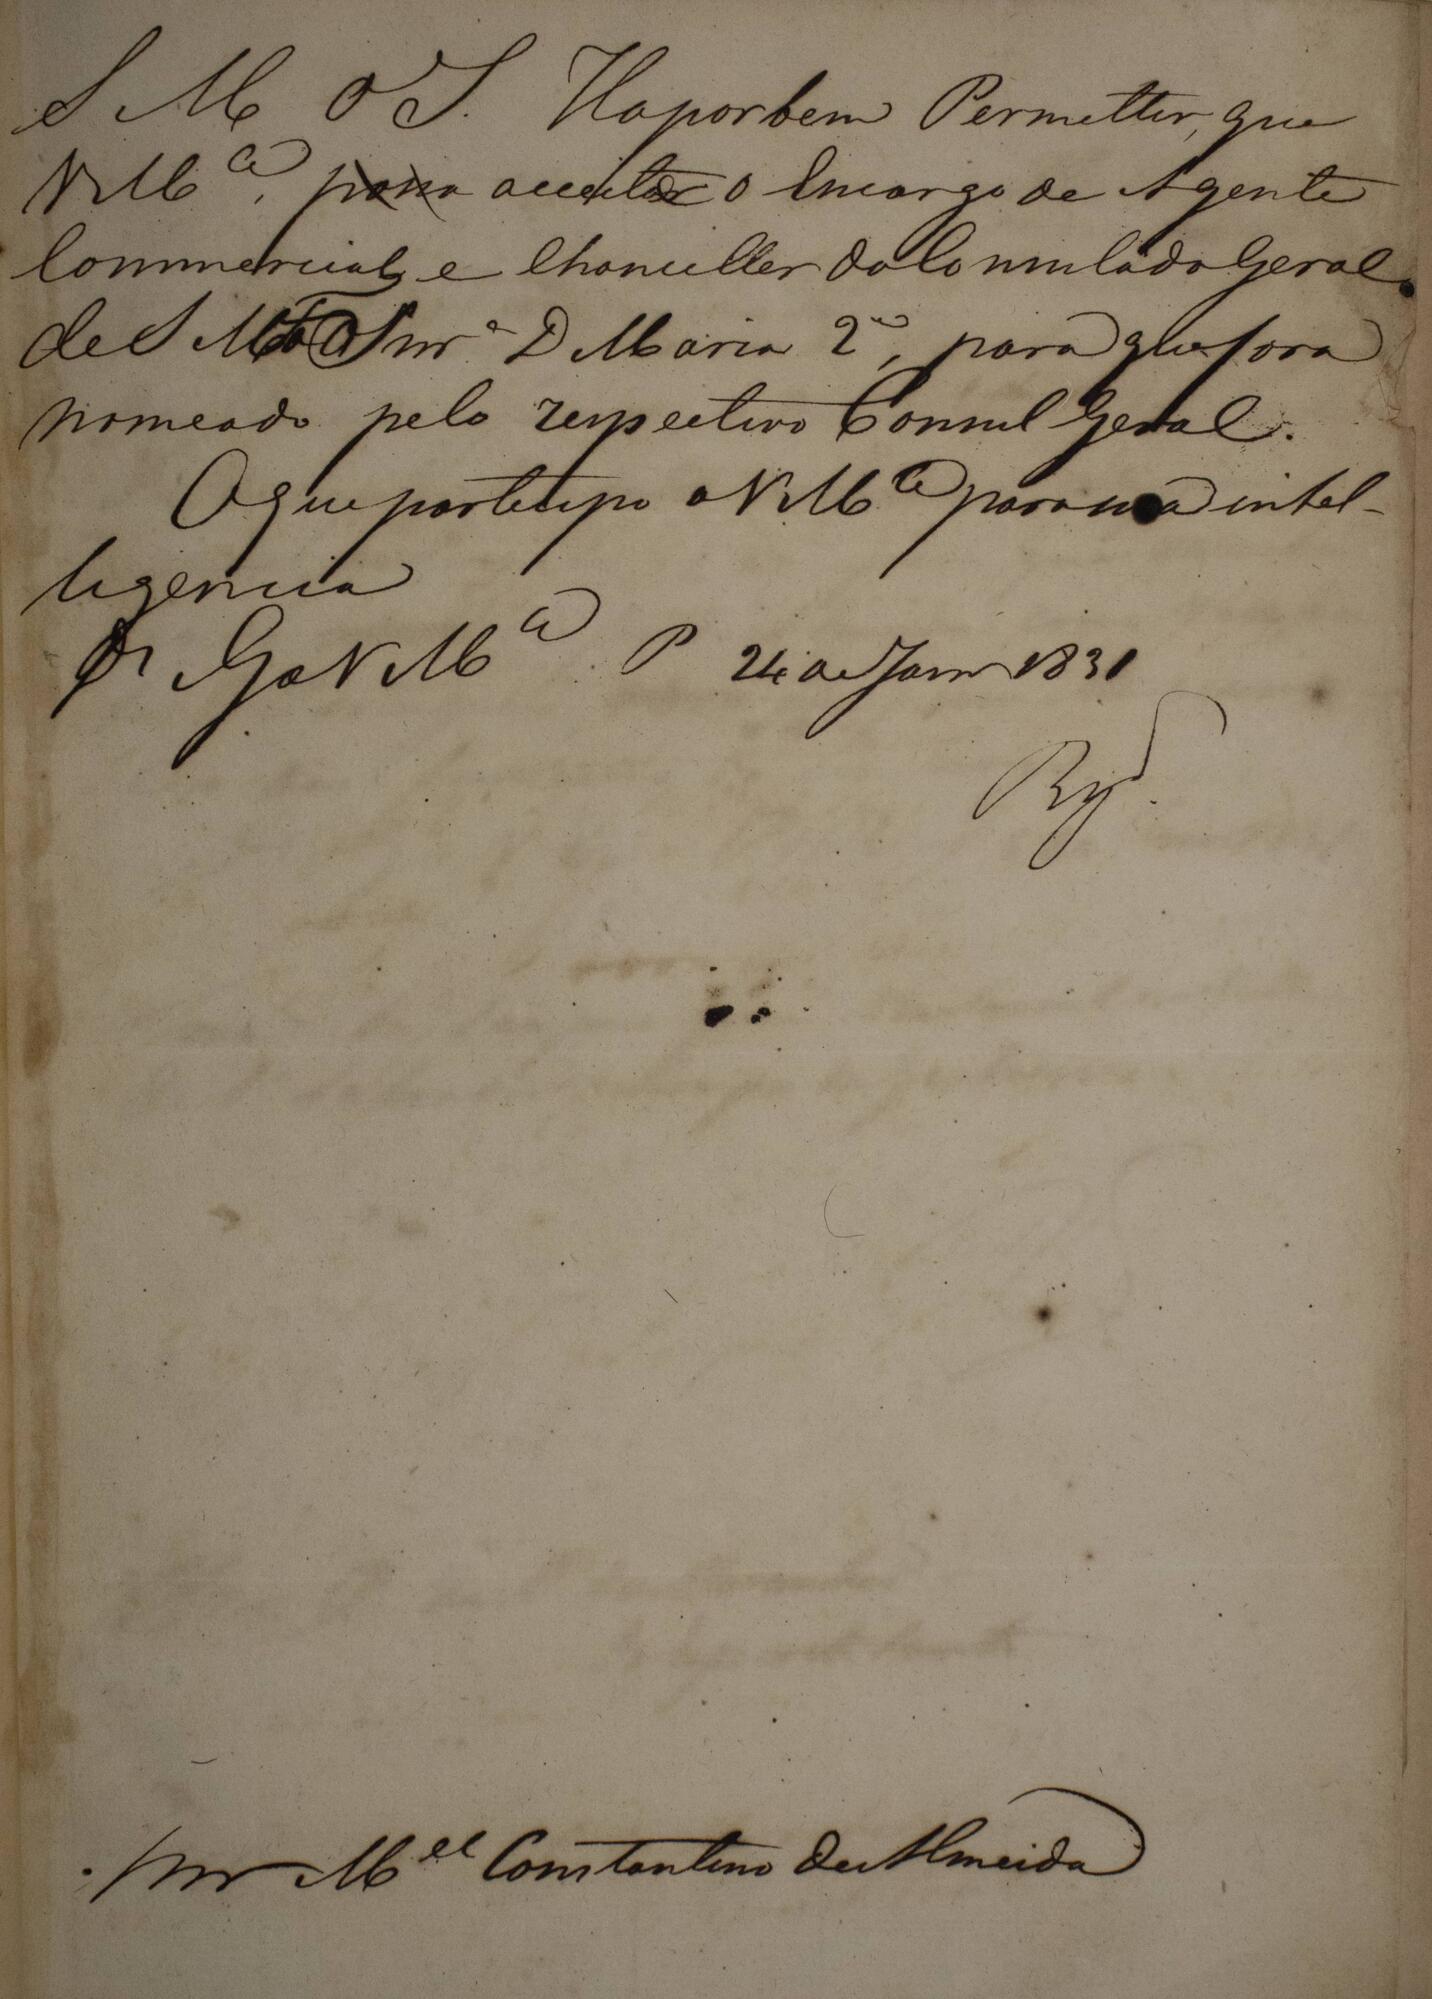 S M O I. Ha por bem Permettir, que
V M.ce, possa acceitar o Encargo de Agente
Commercial, e Chanceller do Consulado Geral
de S M a Snr.a D Maria 2.a, para que fora
nomeado pelo respectivo Consul Geral.
O que partecipo a V M.ce para sua intel-
ligencia
Ds Ge a V M.ce P 24 de Janr 1831
Snr M.el Constantino de Almeida